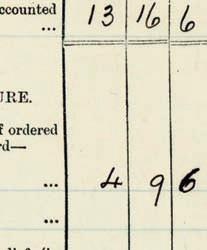 ccounted
... 13 16 6
URE.
f ordered
rd—
... 4 9 6
...